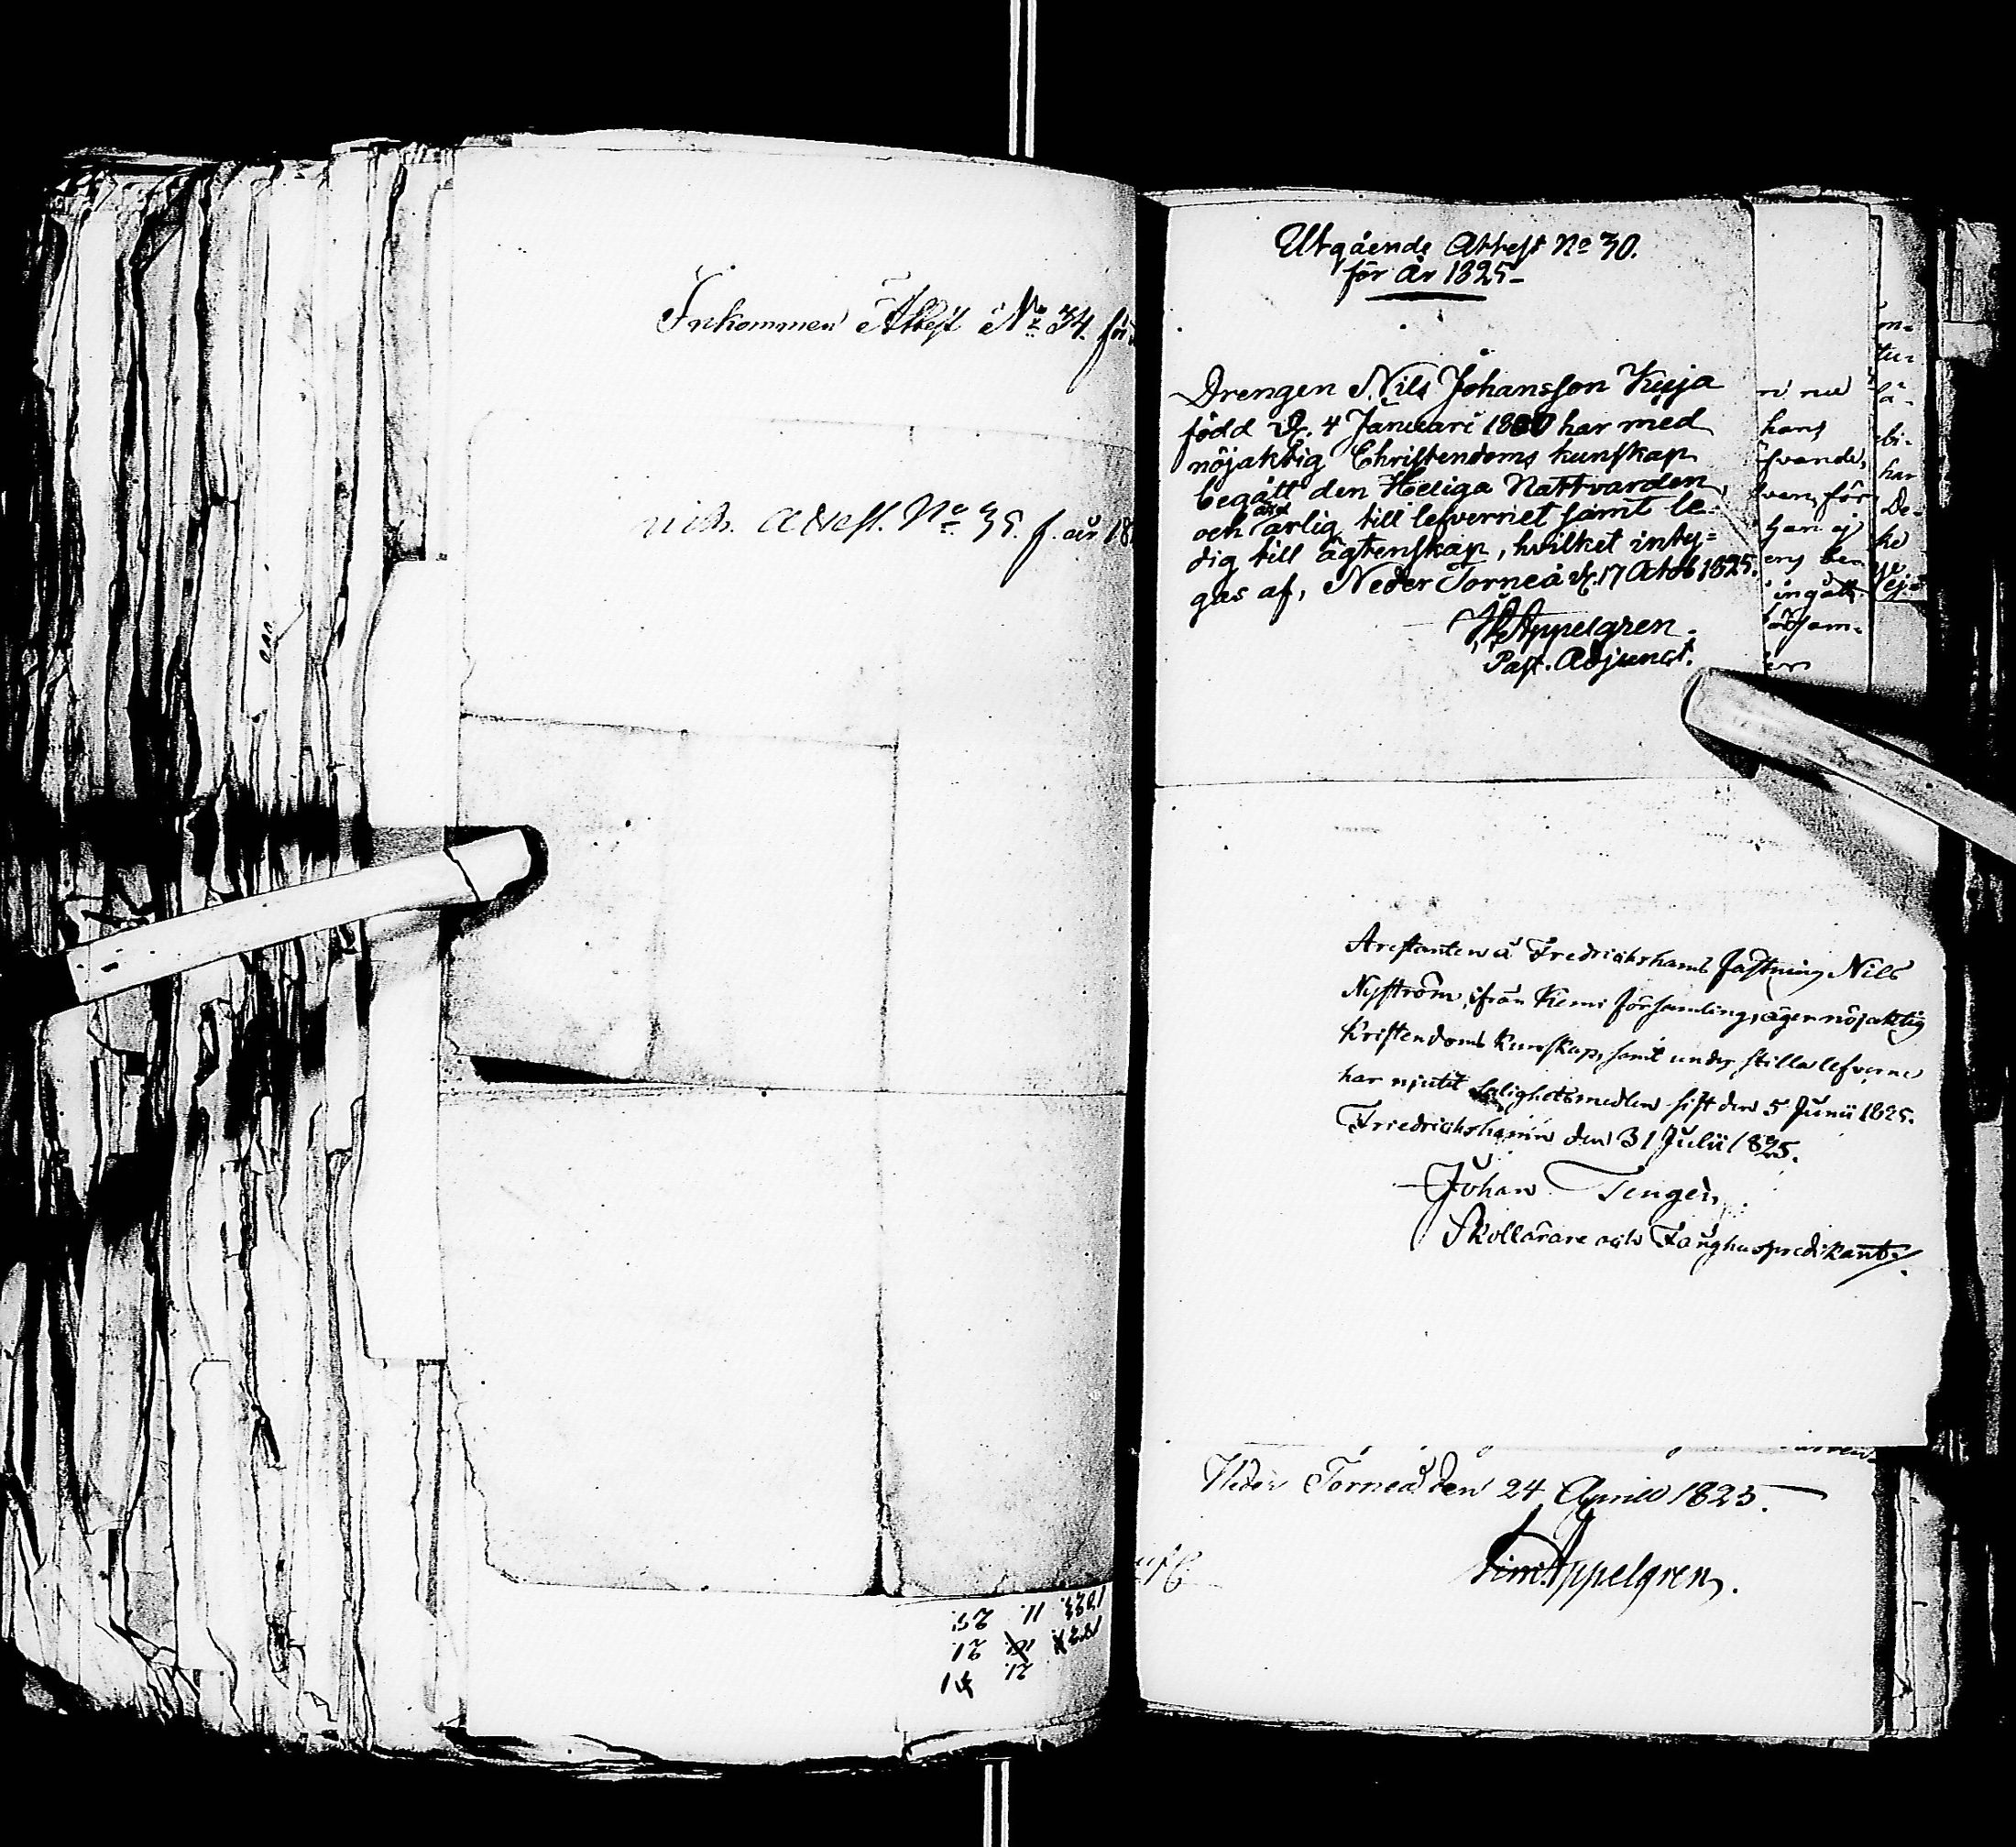 Inkommen Attest No 34. för
Attest. No 35. f. år 18
Utgående Attest No 30.
för år 1825-
Drengen Nils Johansson Kuja
född d. 4 Januari 1800 har med
nöjaktig Christendoms kunskap
begått den Heliga Nattvarden,
och är ärlig till lefvernet samt le-
dig till ägtenskap, hvilket inty-
gas af, Neder Torneå d. 17 Octob 1825.
Appelgren.
Past. Adjunct.
hans
svande,
för
han ej
ingått
försam-
har
De-
Arestanten å Fredrichshams fästning Nils
Nyström, ifrån Kemi församling, äger nöjaktig
Kristendoms kunskap, samt under stilla lefverne
har njutit salighetsmedlen sist den 5 Junii 1825.
Friedrichshamn den 31 Julii 1825.
Johan Tengen
Skollärare och Fånghuspredikant.
Neder Torneå den 24 Aprill 1825.
Appelgren.
1823. 11. 25.
21
21.